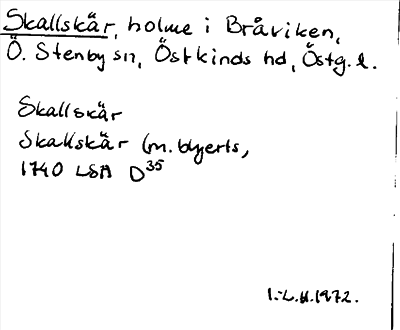 Skallskär, holme i Bråviken,
Ö. Stenby sn, Östkinds hd, Östg. l.
Skallskär
Skallskär (m. blyerts,
1740 LSA D35
I.-L.H. 1972.